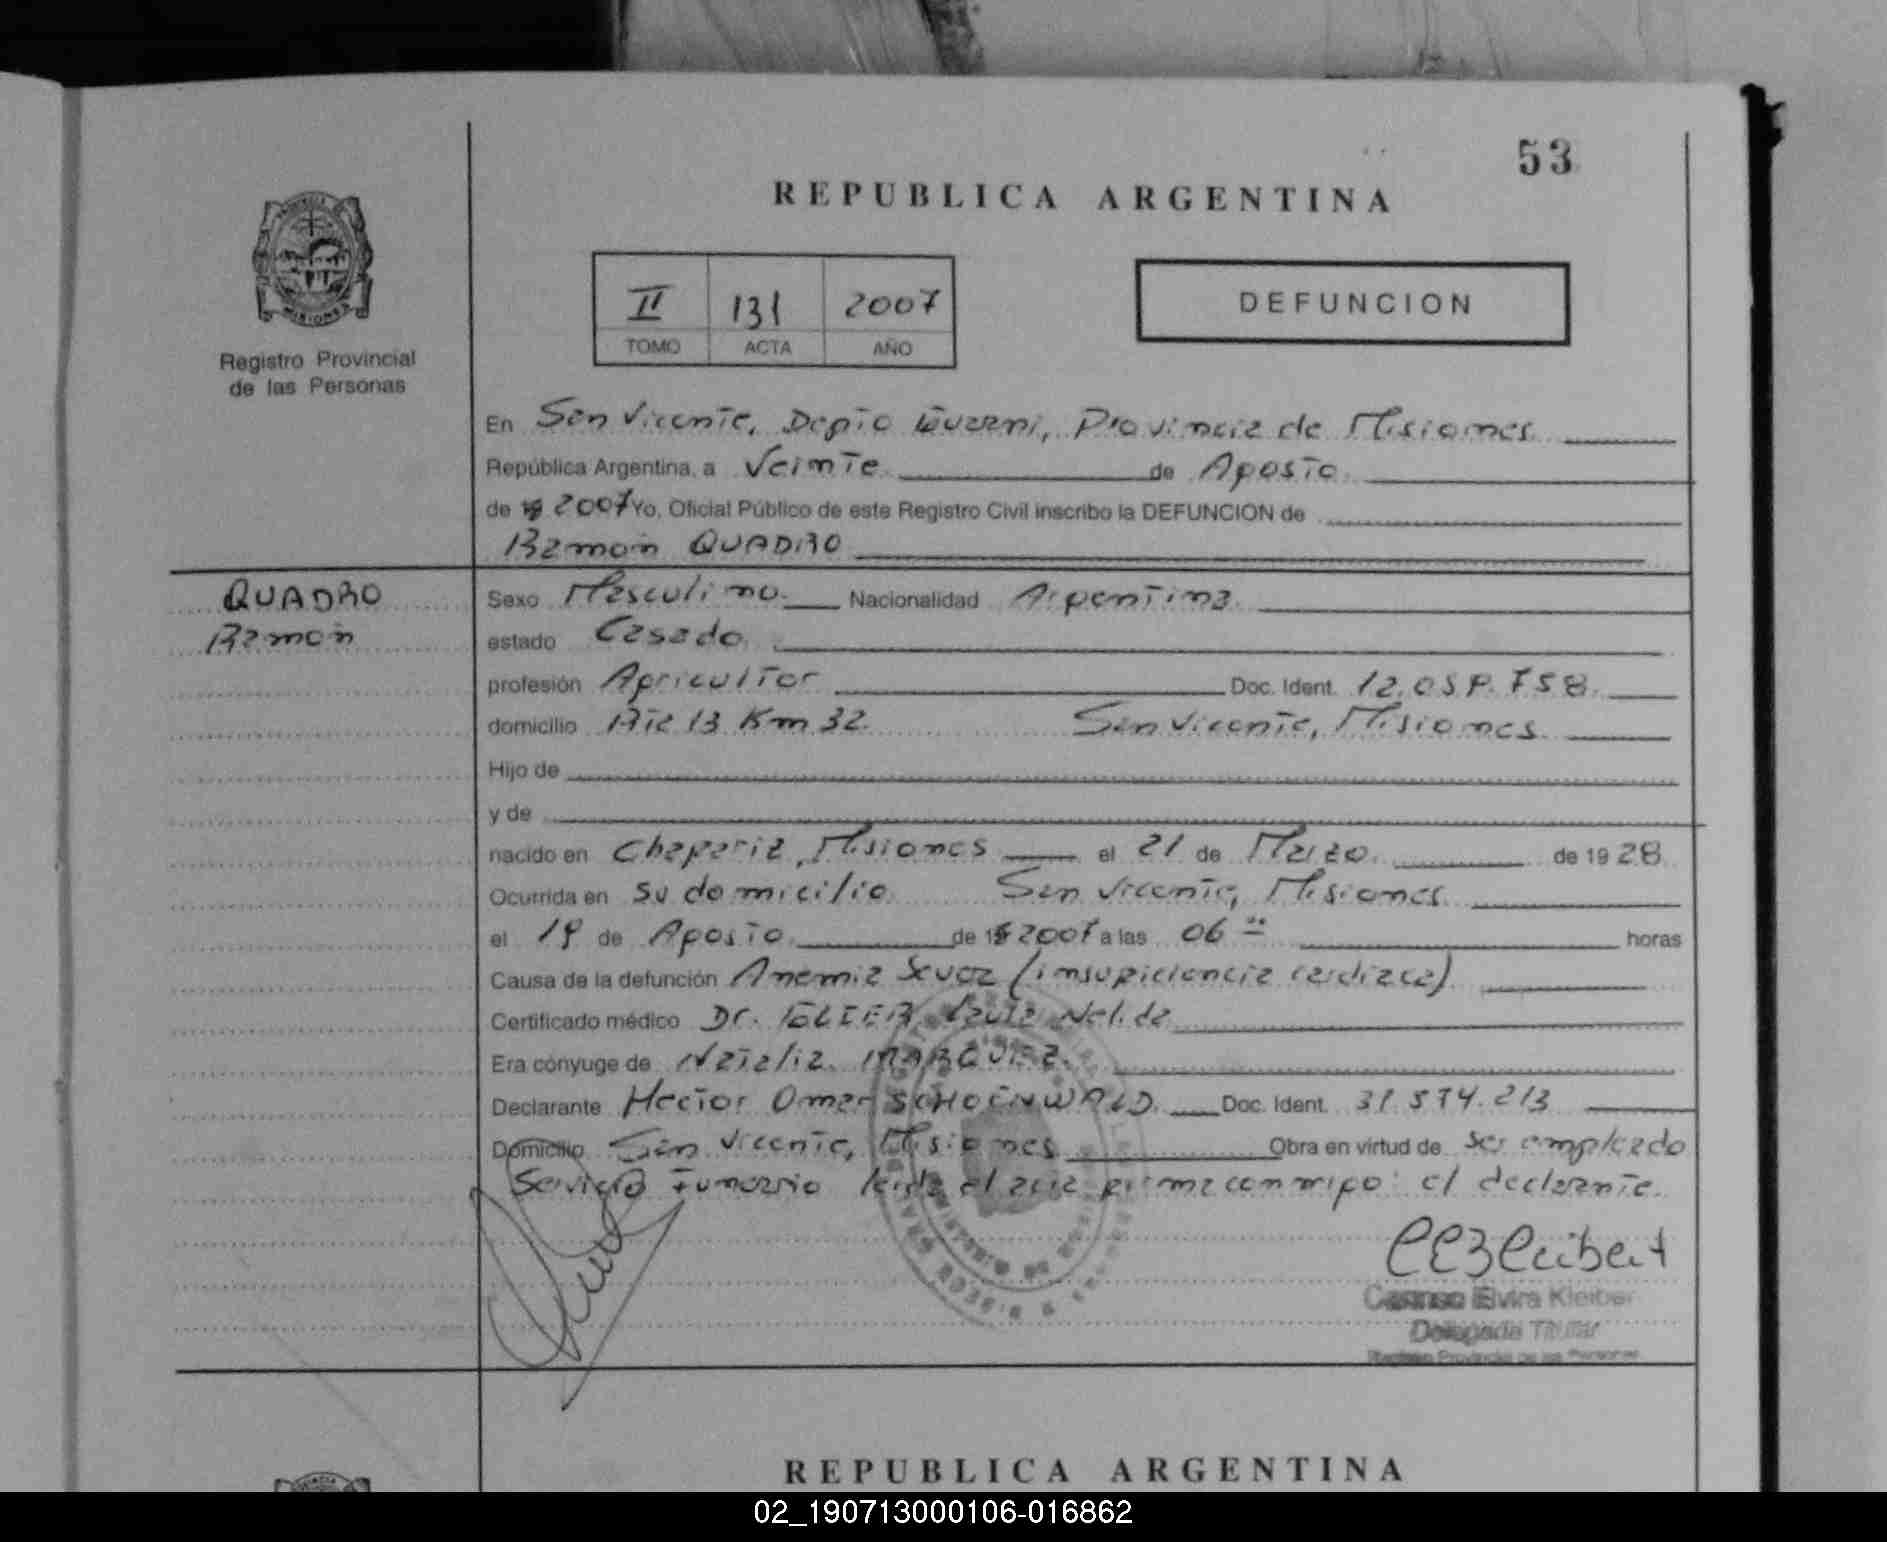 53
REPUBLICA ARGENTINA
PROVINCIA
MISIONES
Registro Provincial
de las Personas
II 131 2007
TOMO ACTA AÑO
DEFUNCION
En San Vicente, Depto Guarani, Provincia de Misiones
República Argentina, a Veinte de Agosto
de 19 2007 Yo, Oficial Público de este Registro Civil inscribo la DEFUNCION de
Ramón QUADRO
QUADRO
Ramón
Sexo Masculino. Nacionalidad Argentina
estado Casado
profesión Agricultor Doc. Ident. 12.059.758.
domicilio Rta 13 Km 32. San Vicente, Misiones
Hijo de
y de
nacido en Chaparia, Misiones el 21 de Marzo de 1928
Ocurrida en su domicilio San Vicente, Misiones
el 19 de Agosto de 19 2007 a las 06 horas
Causa de la defunción Anemia Sever (insuficiencia cardiaca)
Certificado médico Dr. Nelida
Era cónyuge de Natalia MARQUEZ.
Declarante Hector Omar SCHOENWALD. Doc. Ident. 31.574.213
Domicilio San Vicente, Misiones Obra en virtud de ser empleado
Servicio Funerario leida el acta firma conmigo: el declarante.
Carmen Elvira Kleiber
Delegada Titular
Registro Provincial de las Personas
REPUBLICA ARGENTINA
02_190713000106-016862